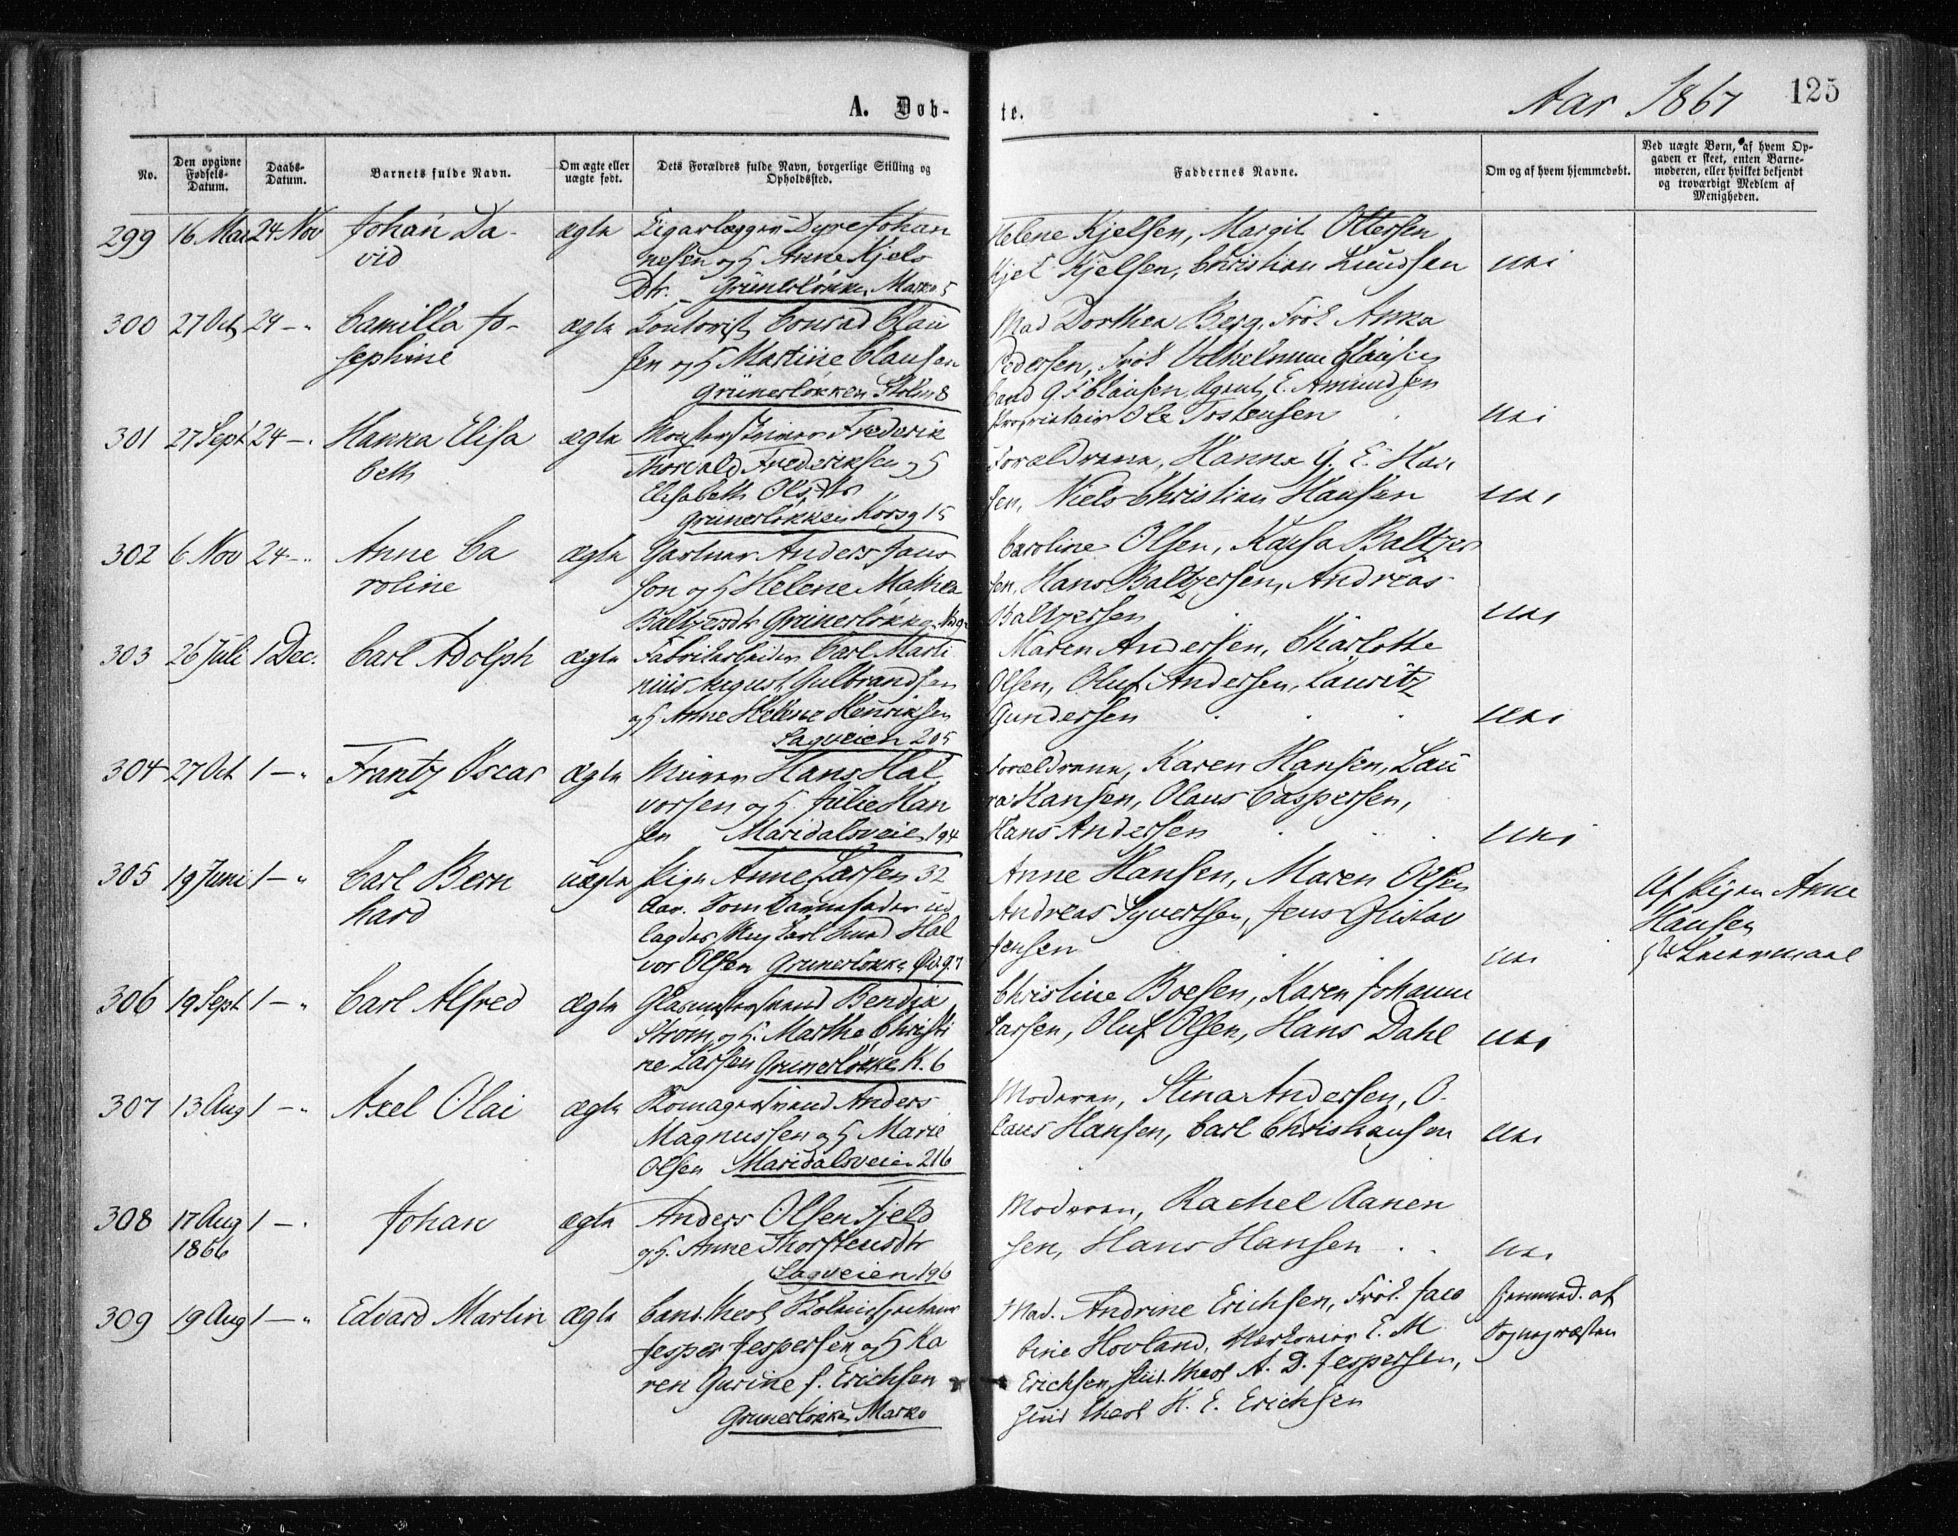 A. Døb-
te.
Aar 1867
125
No.
Den opgivne Fødsels-Datum.
Daabs-Datum.
Barnets fulde Navn.
Om ægte eller uægte født.
Dets Forældres fulde Navn, borgerlige Stilling og Opholdssted.
Faddernes Navne.
Om og af hvem hjemmedøbt.
Ved uægte Børn, af hvem Opgaven er skeet, enten Barnemoderen, eller hvilket bekjendt og troværdigt Medlem af Menigheden.
299 16 Mai 24 Nov Johan Da- ægte Cigarlægger Dyre Johan Helene Kjelsen, Margit Ottersen
vid nesen og H Anne Kjels Kjel Kjelsen, Christian Knudsen nei
Dtr. Grünerløkke, Markv 5
300 27 Oct 24 - " Camilla Jo- ægte Kontorist Conrad Clau Mad Dorthea Berg, Frøk Anna
sephine sen og H Martine Clausen Pedersen, Frøk Vilhelmine Clausen
Grünerløkken Stolm 8 Cand G. F Clausen, Agent E. Amundsen
Proprietair Ole Tostensen nei
301 27 Sept 24 - " Hanna Elisa ægte Frederik Forældrene, Hanna G. E. Han
beth Thorvald Frederiksen og H sen, Niels Christian Hansen nei
Elisabeth Olsdtr
Grünerløkken Korsg 15
302 6 Nov 24 - " Anne Ca ægte Gartner Anders Jans Caroline Olsen, Kaisa Baltzer
roline son og H Helene Mathea sen, Hans Baltzersen, Andreas
Baltzersdtr Grünerløkke Baltzersen nei
303 26 Juli 1 Dec. Carl Adolph ægte Fabrikarbeider Carl Marti Maren Andersen, Charlotte
nius August Gulbrandsen Olsen, Oluf Andersen, Lauritz
og H Anne Helene Henriksen Gundersen nei
Sagveien 205
304 27 Oct 1 - " Frantz Oscar ægte Murer Hans Hal Forældrene, Karen Hansen, Lau
vorsen og H. Julie Han ra Hansen, Olaus Caspersen,
sen Maridalsveien 194 Hans Andersen nei
305 19 Juni 1 - " Carl Bern uægte Pige Anne Larsen 32 Anne Hansen, Maren Olsen Af Pigen Anne
hard Aar. Som Barnefader ud Andreas Syvertsen, Jens Gustav Hansen
lagdes Hal Jensen nei
vor Olsen Grünerløkke
306 19 Sept 1 - " Carl Alfred ægte Bendix Christine Boesen, Karen Johanne
Strøm og H. Marthe Christi Larsen, Oluf Olsen, Hans Dahl nei
ne Larsen Grünerløkke K. 6
307 13 Aug 1 - " Axel Olai ægte Skomagersvend Anders Moderen, Stina Andersen, O-
Magnussen og H Marie laus Hansen, Carl Christiansen nei
Olsen Maridalsveien 216
308 17 Aug 1 - " Johan ægte Anders Olsen Fjeld Moderen, Rachel Aanen
1866 og H. Anne Thorstensdtr sen, Hans Hansen nei
Sagveien 196
309 19 Aug 1 - " Edvard Martin ægte Cand. theol Mad. Andrine Erichsen, Frøk Jaco hjemmed. af
Jesper Jespersen og H Ka bine Hovland, E. M Sognepræsten
ren Gurine f. Erichsen Erichsen, stud. theol A. D. Jespersen,
Grünerløkke, Markv stud theol H. E. Erichsen